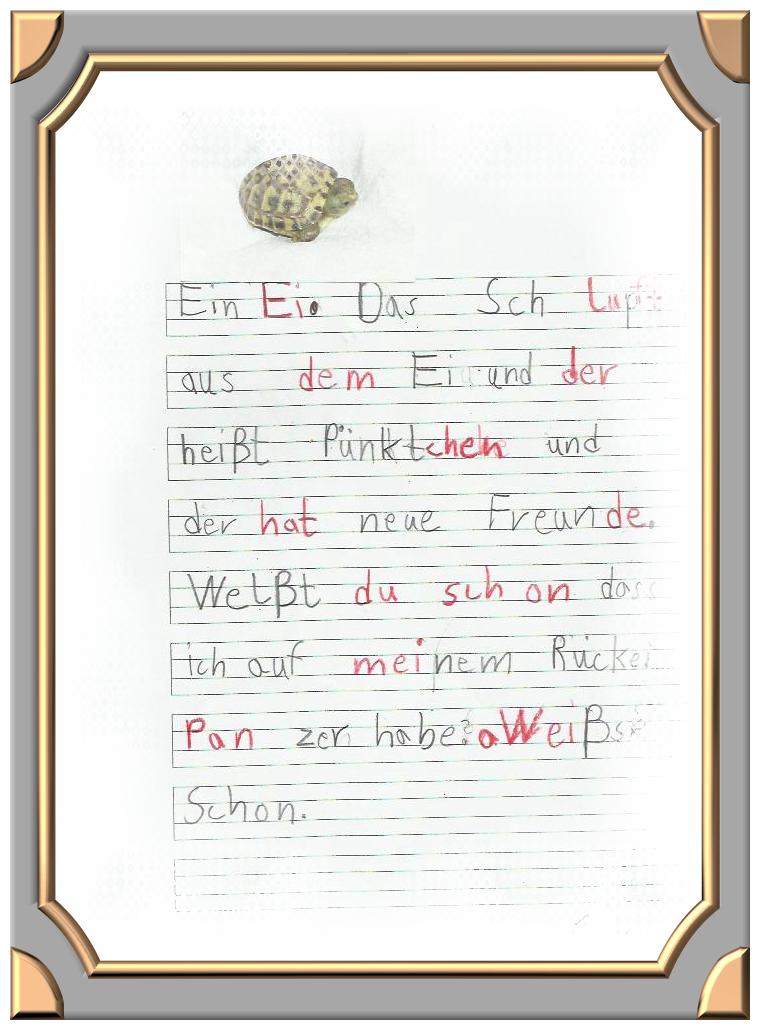 Ein Ei. Das Sch lupft
aus dem Ei und der
heißt Pünktchen und
der hat neue Freunde.
Weißt du schon dass
ich auf meinem Rücken
Pan zer habe? Weißt
Schon.